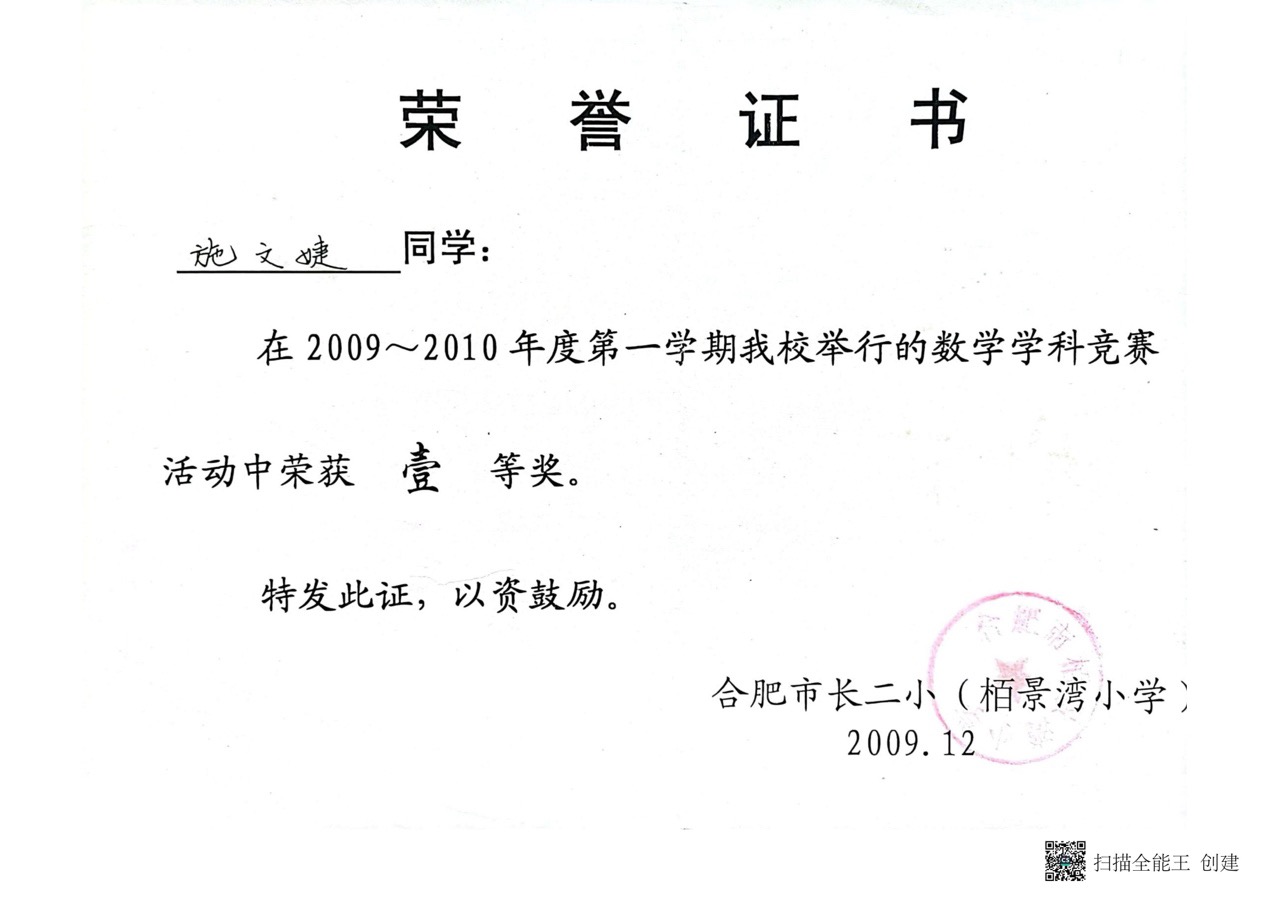 荣誉证书
施文婕 同学：
在 2009～2010 年度第一学期我校举行的数学学科竞赛
活动中荣获 壹 等奖。
特发此证，以资鼓励。
合肥市长二小（栢景湾小学）
2009.12
合肥市
扫描全能王 创建